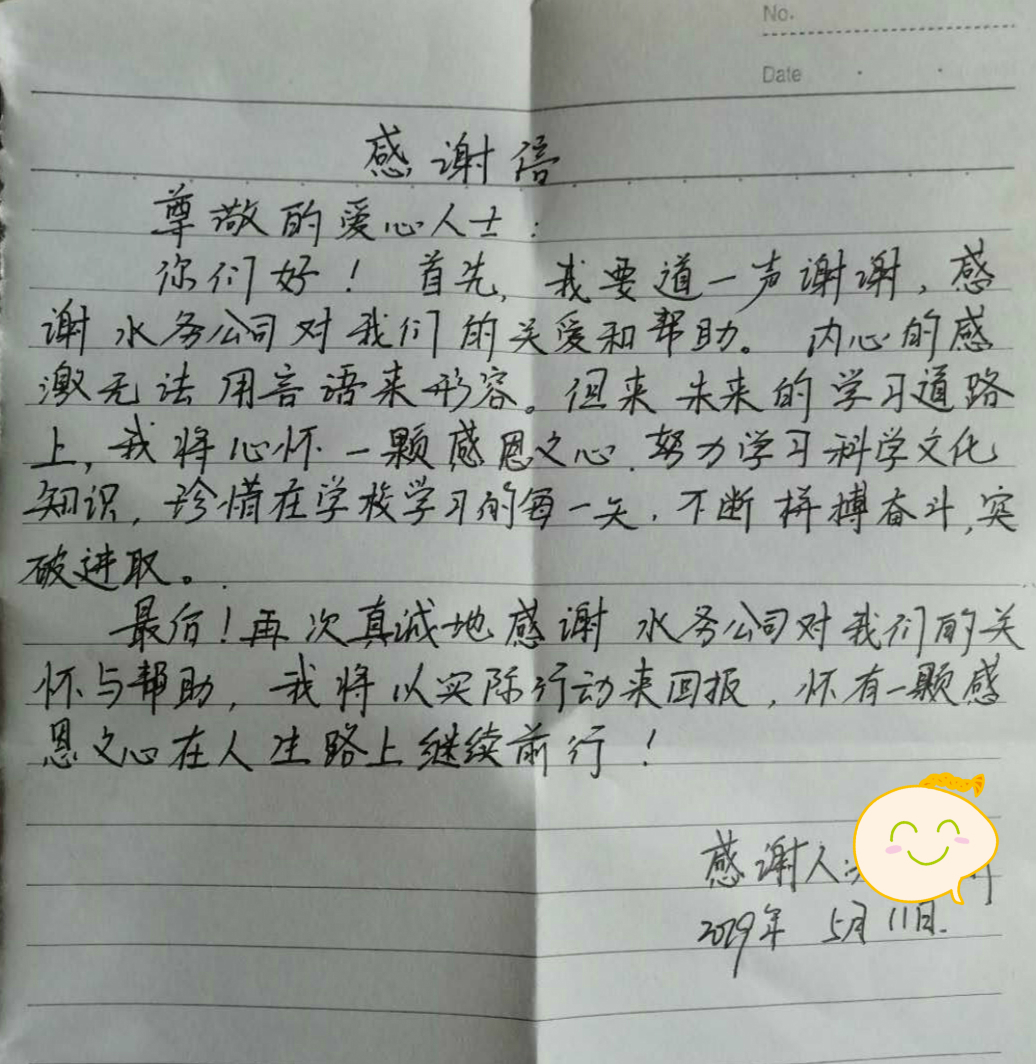 No.
Date
感谢信
尊敬的爱心人士：
你们好！首先，我要道一声谢谢，感
谢水务公司对我们的关爱和帮助。内心的感
激无法用言语来形容。但来未来的学习道路
上，我将心怀一颗感恩之心，努力学习科学文化
知识，珍惜在学校学习的每一天，不断拼搏奋斗，突
破进取。
最后！再次真诚地感谢水务公司对我们的关
怀与帮助，我将以实际行动来回报，怀有一颗感
恩之心在人生路上继续前行！
感谢人
2019年 5月11日.